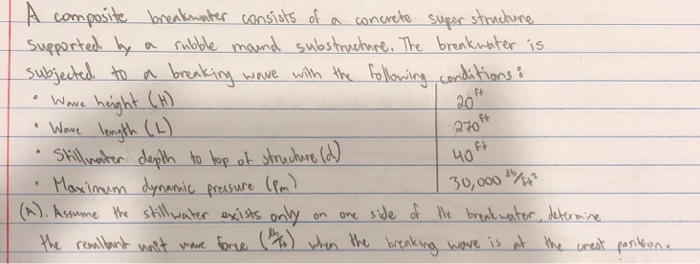 A composite breakwater consists of a concrete super structure
supported by a rubble mound substructure. The breakwater is
subjected to a breaking wave with the following conditions:
• Wave height (H) 20 ft
• Wave length (L) 270 ft
• Stillwater depth to top of structure (d) 40 ft
• Maximum dynamic pressure (Pm) 30,000 lb/ft²
(A). Assume the stillwater exists only on one side of the breakwater, determine
the resultant unit wave force (lb/ft) when the breaking wave is at the crest position.